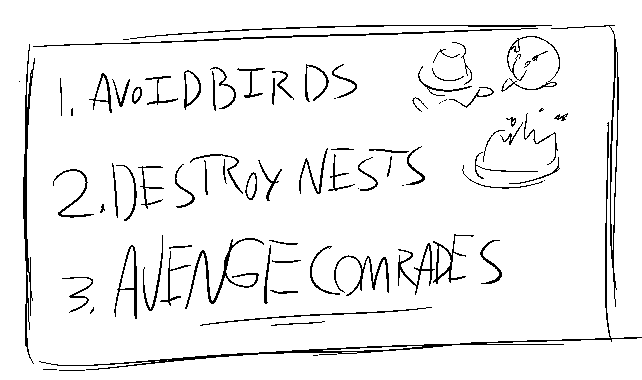 1. AVOID BIRDS
2. DESTROY NESTS
3. AVENGE COMRADES